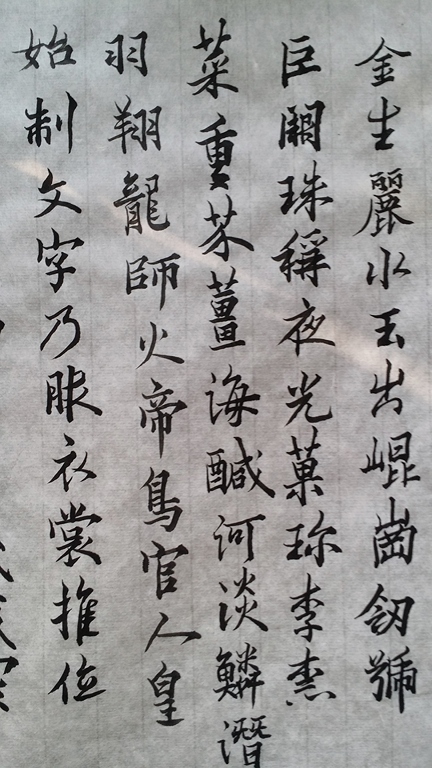 金生麗水玉出崐崗劒號
巨闕珠稱夜光菓珎李柰
菜重芥薑海醎河淡鱗潛
羽翔龍師火帝鳥官人皇
始制文字乃服衣裳推位